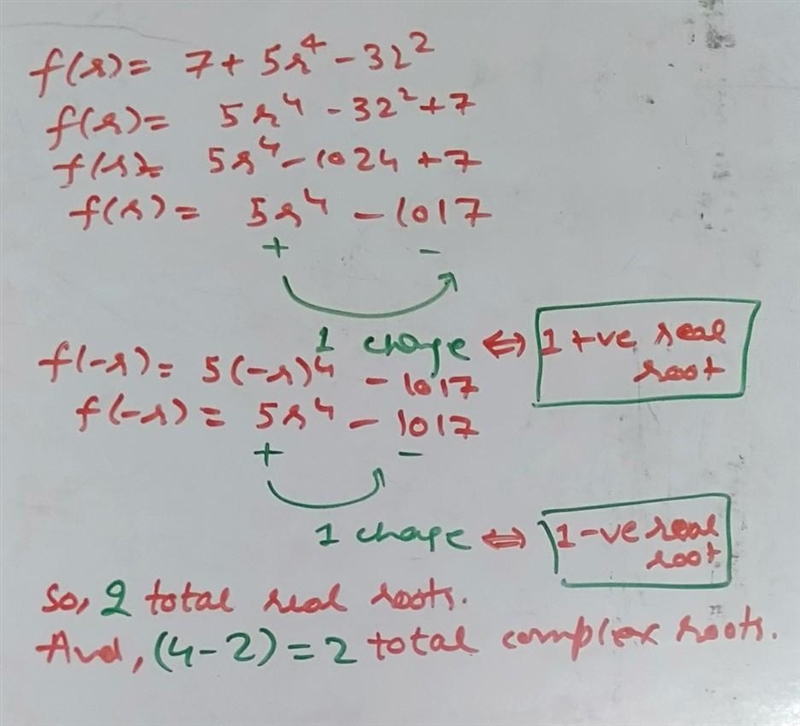 f(x) = 7 + 5x⁴ - 32²
f(x) = 5x⁴ - 32² + 7
f(x) = 5x⁴ - 1024 + 7
f(x) = 5x⁴ - 1017
+ -
1 chage ⇔ 1 +ve real root
f(-x) = 5(-x)⁴ - 1017
f(-x) = 5x⁴ - 1017
+ -
1 chage ⇔ 1 -ve real root
So, 2 total real roots.
And, (4-2) = 2 total complex roots.